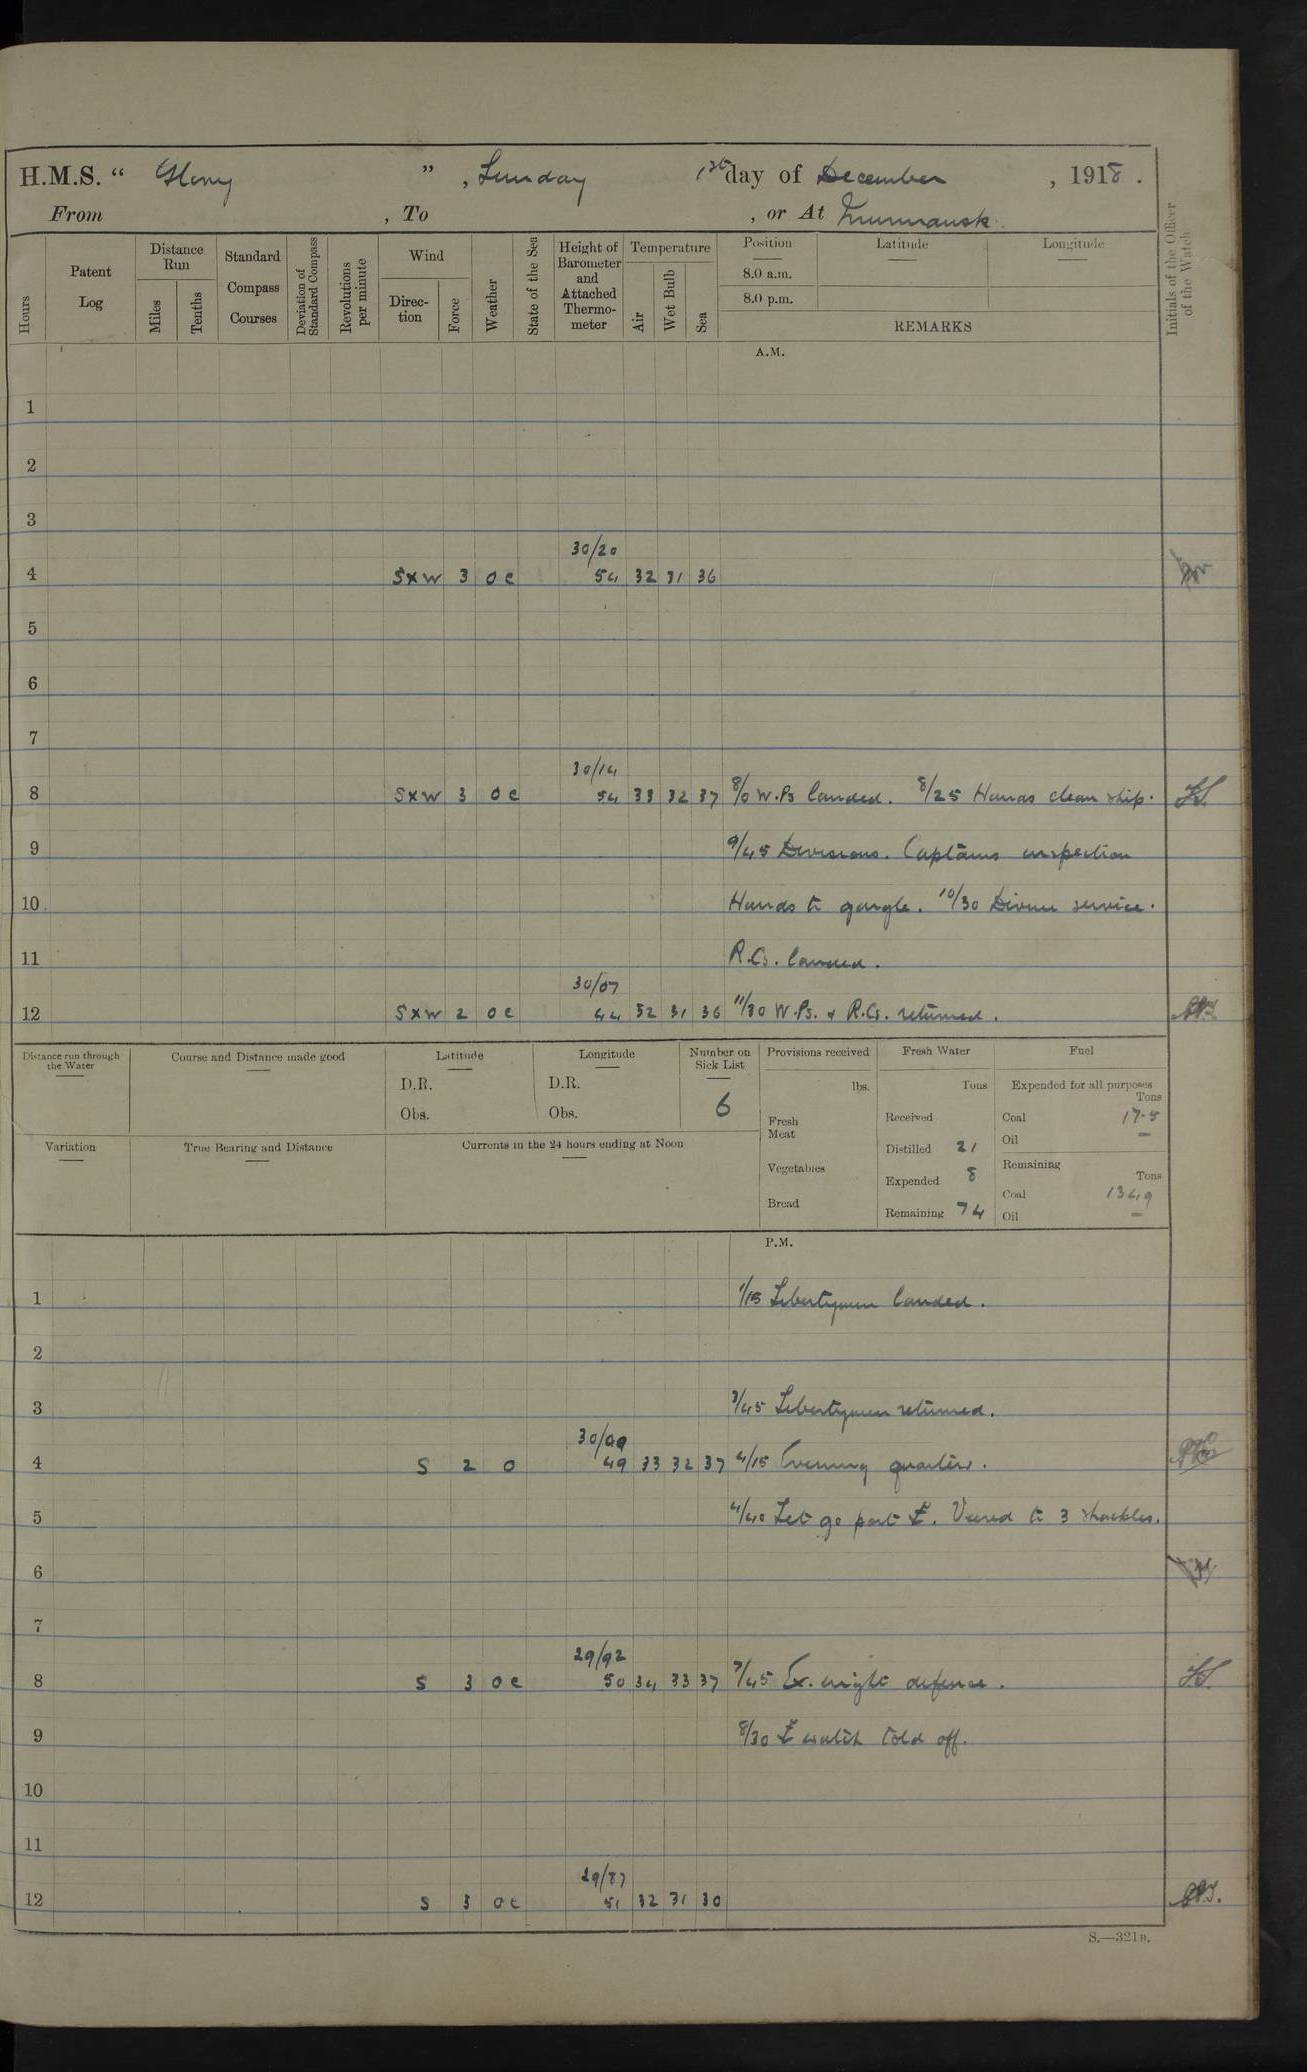 H.M.S. “ Glory ” , Sunday 1st day of December , 1918 .
From , To , or At Murmansk.
Hours Patent Log Distance Run Miles Tenths Standard Compass Courses Deviation of Standard Compass Revolutions per minute Wind Direction Force Weather State of the Sea Height of Barometer and Attached Thermometer Temperature Air Wet Bulb Sea Position 8.0 a.m. 8.0 p.m. Latitude Longitude REMARKS Initials of the Officer of the Watch
A.M.
1
2
3
30/20
4 S x W 3 o c 54 32 31 36
5
6
7
30/14
8 S x W 3 o c 54 33 32 37 8/0 W.Ps landed. 8/25 Hands clean ship.
9 9/45 Divisions. Captains inspection
10 Hands to gargle. 10/30 Divine service.
11 R.Cs. landed.
30/07
12 S x W 2 o c 44 32 31 36 11/30 W.Ps. & R.Cs. returned.
Distance run through the Water Course and Distance made good Latitude Longitude Number on Sick List Provisions received Fresh Water Fuel
D.R. D.R. lbs. Tons Expended for all purposes Tons
Obs. Obs. 6 Fresh Meat Received Coal 17.5
Variation True Bearing and Distance Currents in the 24 hours ending at Noon Distilled 21 Oil –
Vegetables Expended 8 Remaining Tons
Bread Remaining 74 Coal 1349
Oil –
P.M.
1 1/15 Libertymen landed.
2
3 3/45 Libertymen returned.
30/00
4 S 2 o 49 33 32 37 4/15 Evening quarters.
5 4/40 Let go port ⚓. Veered to 3 shackles.
6
7
29/92
8 S 3 o c 50 34 33 37 7/45 Ex. night defence.
9 8/30 ⚓ watch told off.
10
11
29/87
12 S 3 o c 51 32 31 30
S.—321B.